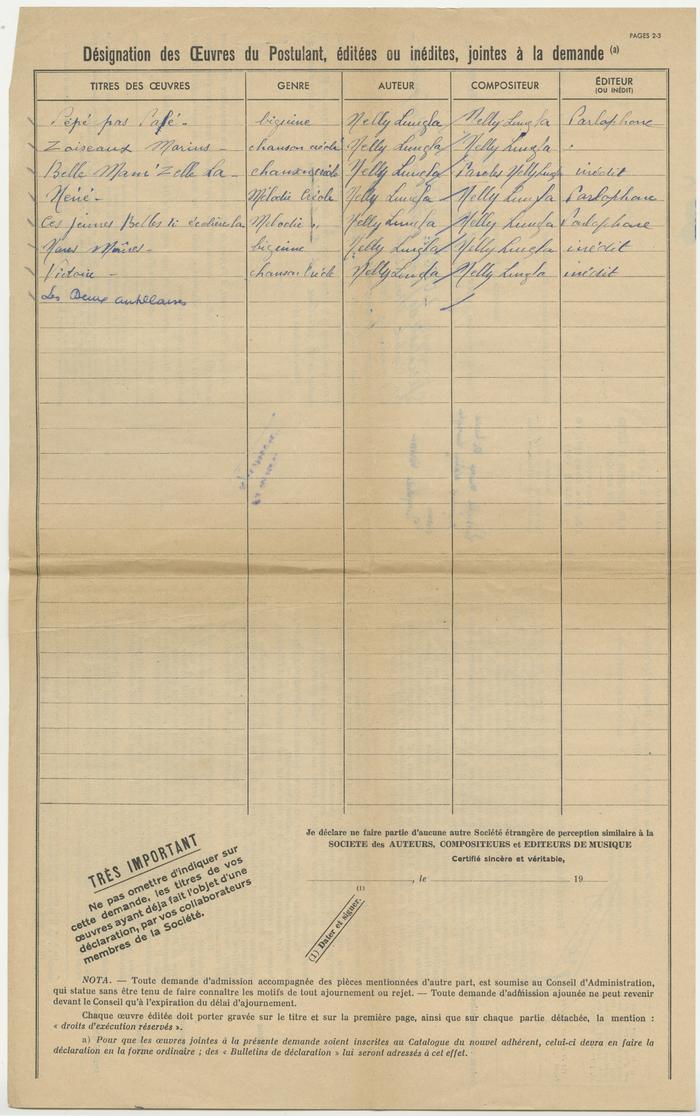 PAGES 2-3
Désignation des Œuvres du Postulant, éditées ou inédites, jointes à la demande (a)
TITRES DES ŒUVRES GENRE AUTEUR COMPOSITEUR ÉDITEUR
(OU INÉDIT)
Pépé pas Palé - biguine Nelly Lungla Nelly Lungla Parlophone
Zoiseaux Marins - chanson créole Nelly Lungla Nelly Lungla "
Belle Mam'Zelle La - chanson créole Nelly Lungla Paroles Nelly Lungla inédit
Néné - Mélodie Créole Nelly Lungla Nelly Lungla Parlophone
Ces jeunes Belles Mélodie " Nelly Lungla Nelly Lungla Parlophone
biguine Nelly Lungla Nelly Lungla inédit
Victoire - chanson Créole Nelly Lungla Nelly Lungla inédit
Les Deux antillaises
Je déclare ne faire partie d'aucune autre Société étrangère de perception similaire à la
SOCIETE des AUTEURS, COMPOSITEURS et EDITEURS DE MUSIQUE
Certifié sincère et véritable,
, le 19
(1)
(1) Dater et signer.
TRÈS IMPORTANT
Ne pas omettre d'indiquer sur
cette demande, les titres de vos
œuvres ayant déja fait l'objet d'une
déclaration, par vos collaborateurs
membres de la Société.
NOTA. — Toute demande d'admission accompagnée des pièces mentionnées d'autre part, est soumise au Conseil d'Administration,
qui statue sans être tenu de faire connaître les motifs de tout ajournement ou rejet. — Toute demande d'admission ajounée ne peut revenir
devant le Conseil qu'à l'expiration du délai d'ajournement.
Chaque œuvre éditée doit porter gravée sur le titre et sur la première page, ainsi que sur chaque partie détachée, la mention :
« droits d'exécution réservés ».
a) Pour que les œuvres jointes à la présente demande soient inscrites au Catalogue du nouvel adhérent, celui-ci devra en faire la
déclaration en la forme ordinaire ; des « Bulletins de déclaration » lui seront adressés à cet effet.